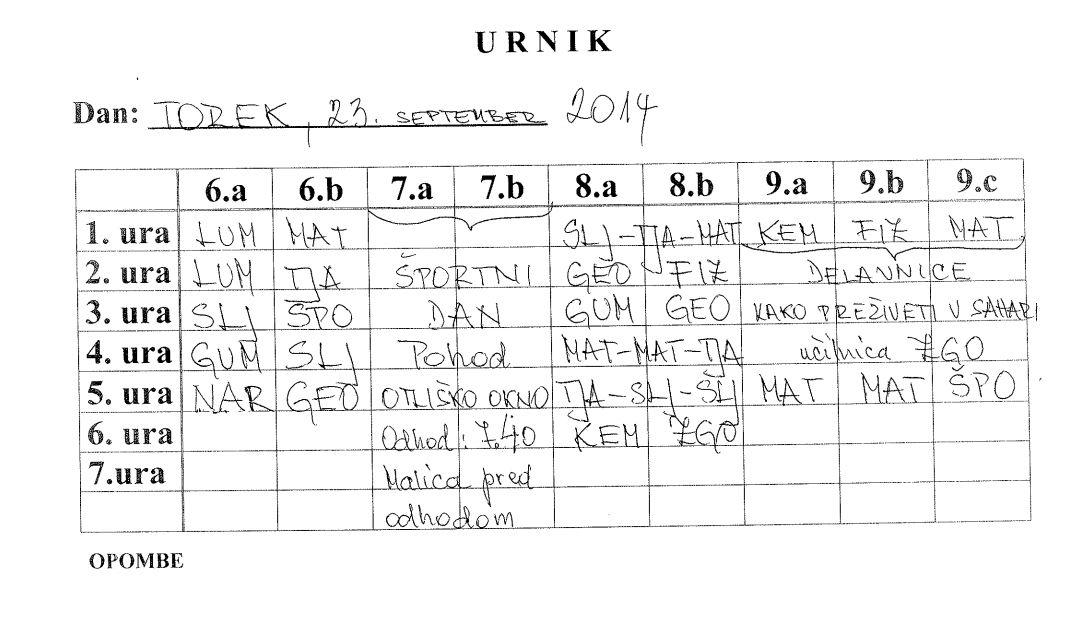 URNIK
Dan: TOREK, 23. SEPTEMBER 2014
6.a 6.b 7.a 7.b 8.a 8.b 9.a 9.b 9.c
1. ura LUM MAT SLJ-TJA-MAT KEM FIZ MAT
2. ura LUM TJA ŠPORTNI GEO FIZ DELAVNICE
3. ura SLJ ŠPO DAN GUM GEO KAKO PREŽIVETI V SAHARI
4. ura GUM SLJ Pohod MAT-MAT-TJA učilnica ZGO
5. ura NAR GEO OTLIŠKO OKNO TJA-SLJ-SLJ MAT MAT ŠPO
6. ura Odhod: 7.40 KEM ZGO
7.ura Malica pred
odhodom
OPOMBE